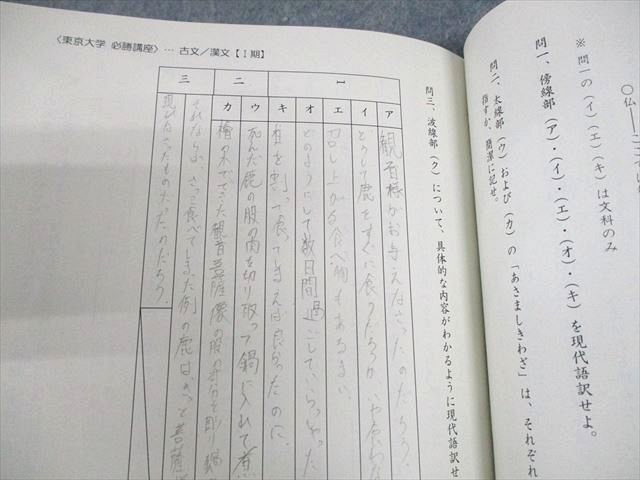 〇仏――ここでは
※ 問一の（イ）（エ）（キ）は文科のみ
問一、傍線部（ア）・（イ）・（エ）・（オ）・（キ）を現代語訳せよ。
問二、太線部（ウ）および（カ）の「あさましきわざ」は、それぞれ
指すか、簡潔に記せ。
問三、波線部（ク）について、具体的な内容がわかるように現代語訳せ
〈東京大学 必勝講座〉… 古文／漢文【Ⅰ期】
一
ア 観音様がお与えなさったのだろう。
イ どうして鹿をすぐに食うだろうか、いや食わな
エ 召し上がる食べ物もあるまい。
オ どのようにして数日間過ごして、いらっしゃった
キ 柱を割って食ってしまえば良かったのに。
二
ウ 死んだ鹿の股の肉を切り取って鍋に入れて煮
カ 檜の木でできた観音菩薩像の股の部分を彫り鍋
三
それならば、さっき食べてしまった例の鹿はきっと菩薩
現れなさったものだったのだろう。